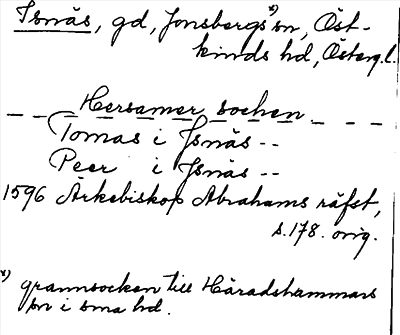 Isnäs, gd, Jonsbergs x) sn, Öst-
kinds hd, Österg.l.
- - - Hersamer sochen - - -
Tomas i Jsnäs --
Peer i Jsnäs --
1596 Ärkebiskop Abrahams räfst,
s.178. orig.
x) grannsocken till Häradshammars
sn i sma hd.